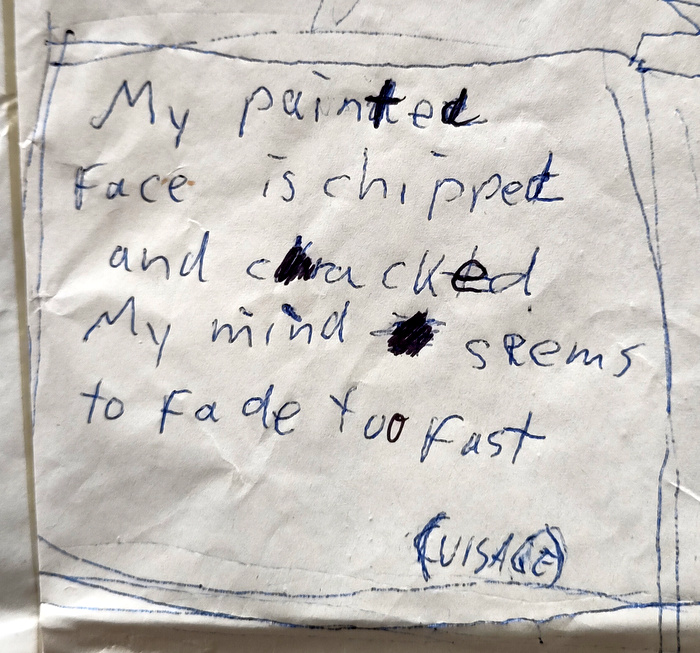 My painted
Face is chipped
and cracked
My mind seems
to Fade too Fast
(VISAGE)